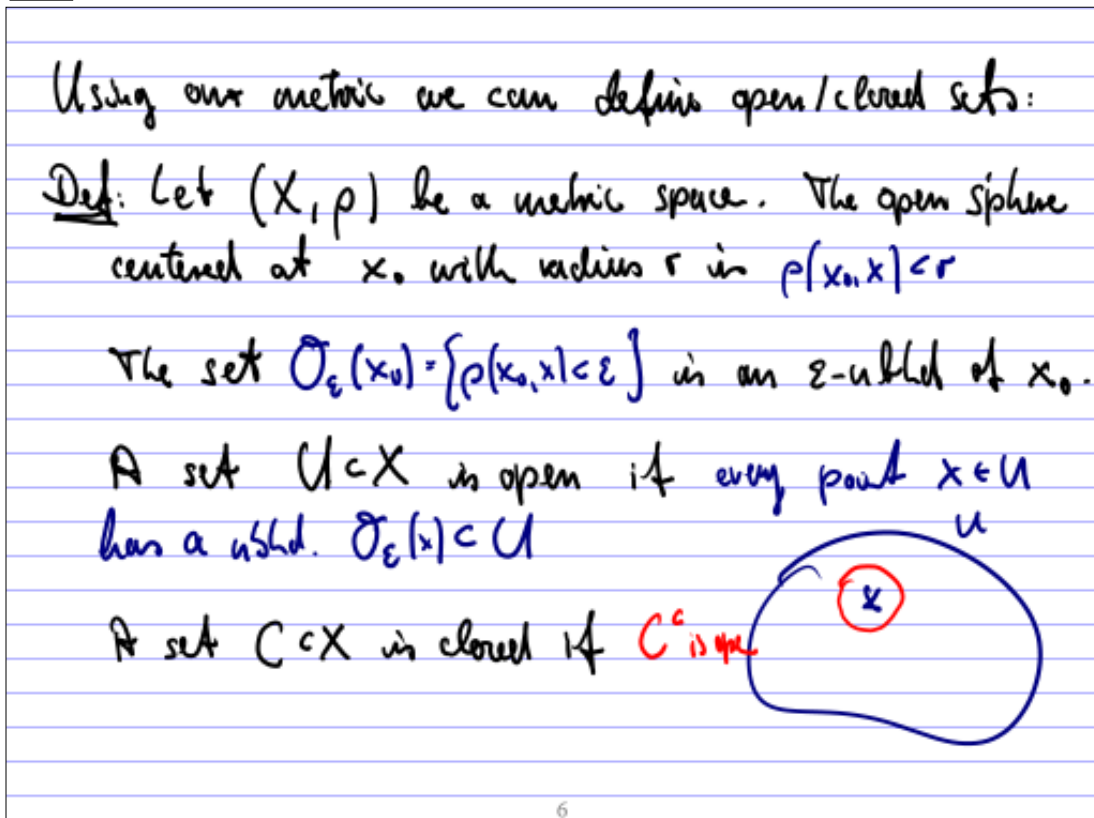 Using our metric we can define open/closed sets:
Def: Let (X, ρ) be a metric space. The open sphere
centered at x₀ with radius r is ρ(x₀, x) < r
The set O_ε(x₀) = {ρ(x₀, x) < ε} is an ε-nbhd of x₀.
A set U ⊂ X is open if every point x ∈ U
has a nbhd. O_ε(x) ⊂ U
U
x
A set C ⊂ X is closed if Cᶜ is open
6